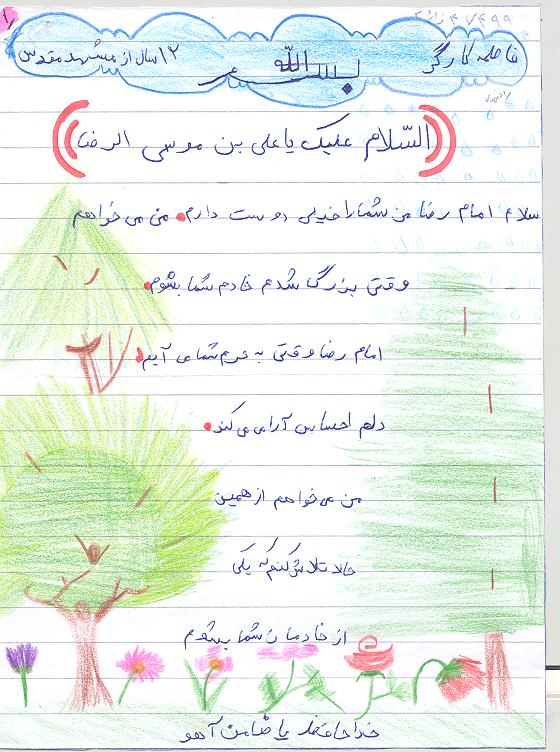 فاطمه کارگر
بسم الله
۱۲ سال از مشهد مقدس
(السّلام علیک یا علی بن موسی الرضا)
سلام امام رضا من شما را خیلی دوست دارم. من می خواهم
وقتی بزرگ شدم خادم شما بشوم.
امام رضا وقتی به حرم شما می آیم.
دلم احساس آرامی می کند.
من می خواهم از همین
حالا تلاش کنم که یکی
از خادمان شما بشوم
خداحافظ یا ضامن آهو